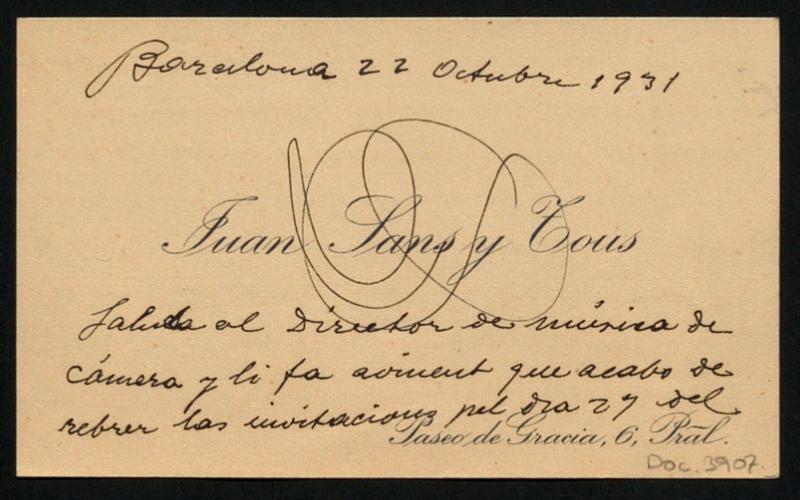 Barcelona 22 Octubre 1931
Juan Sans y Tous
Saluda al Director de música de
cámera y li fa avinent que acabo de
rebrer las invitacions pel dia 27 del
Paseo de Gracia, 6, Pral.
Doc. 3907.